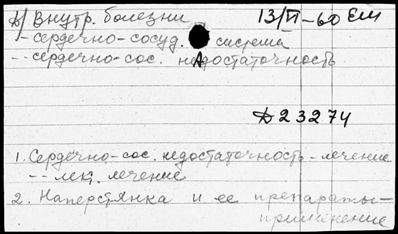 В) Внутр. болезни 13/VI-60 Ем
- сердечно-сосуд. система
-- сердечно-сос. недостаточность
Д 23274
1. Сердечно-сос. недостаточность - лечение
-- лек. лечение
2. Наперстянка и ее препараты -
применение